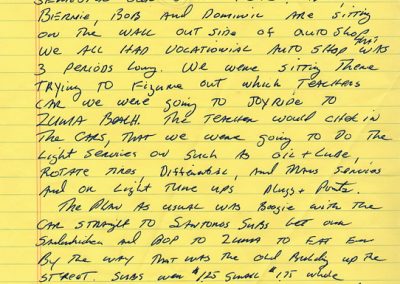 Bernie, Bob and Dominic are sitting
on the wall out side of auto shop that
we all had vocational auto shop was
3 periods long. We were sitting there
trying to figure out which teachers
car we were going to joyride to
Zuma Beach. The teacher would check in
the cars, that we were going to do the
light services on such as oil + lube,
rotate tires, Differential, and Trans services
and or light tune ups plugs + points.
The plan as usual was boogie with the
car straight to Santoros Subs get our
and bop to Zuma to eat em
By the way that was the old Building up the
street. Subs were $1.25 small $1.75 whole